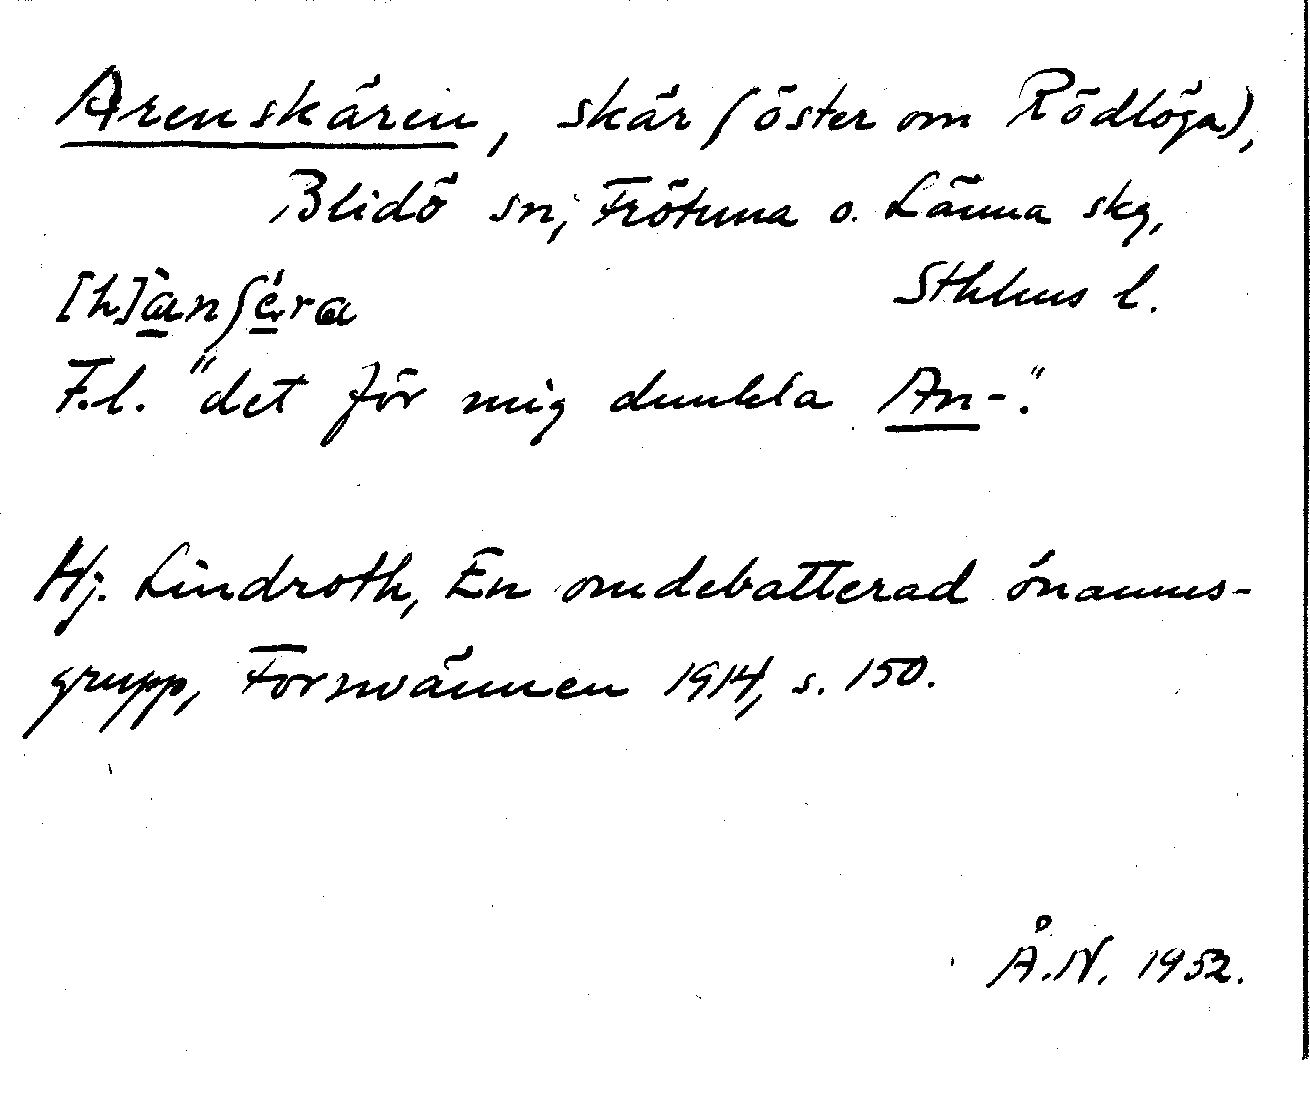 Arenskären, skär (öster om Rödlöga),
Blidö sn, Frötuna o. Länna skg,
[h]ànʃéra Sthlms l.
F.l. "det för mig dunkla An-".
Hj. Lindroth, En omdebatterad önamns-
grupp, Fornvännen 1914, s. 150.
Å.N. 1952.